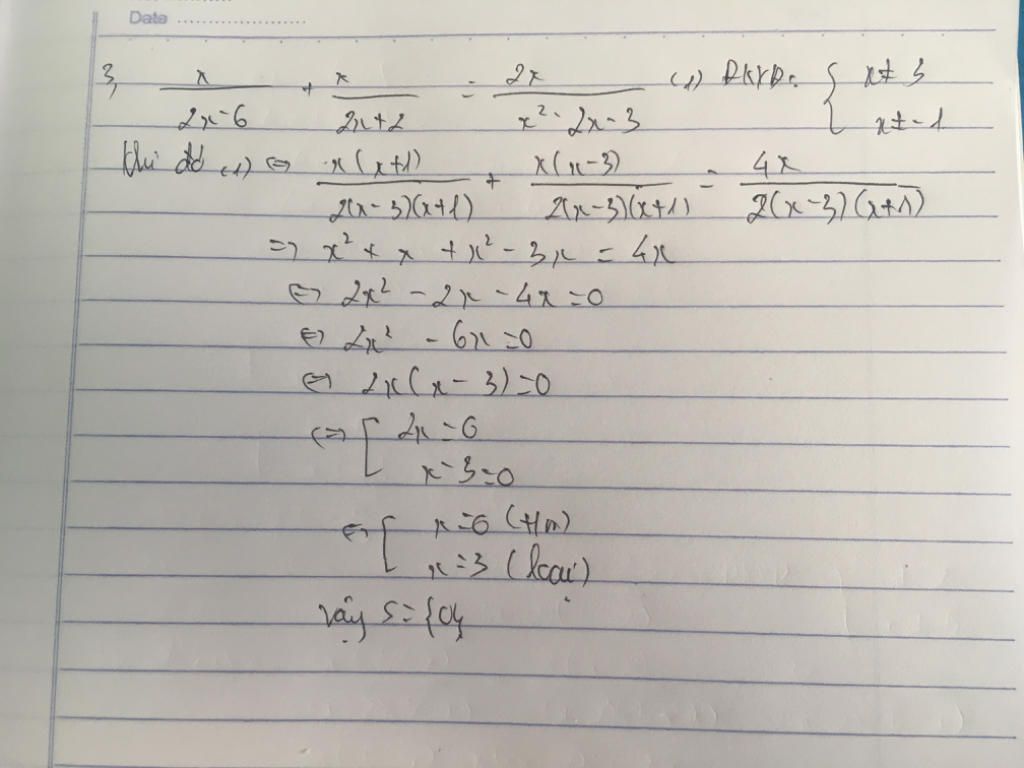 Date
3, x/(2x-6) + x/(2x+2) = 2x/(x² - 2x - 3) (1) ĐKXĐ: { x ≠ 3
x ≠ -1
Khi đó (1) ⇔ x(x+1)/(2(x-3)(x+1)) + x(x-3)/(2(x-3)(x+1)) = 4x/(2(x-3)(x+1))
=> x² + x + x² - 3x = 4x
⇔ 2x² - 2x - 4x = 0
⇔ 2x² - 6x = 0
⇔ 2x(x - 3) = 0
⇔ [ 2x = 0
x - 3 = 0
⇔ [ x = 0 (t/m)
x = 3 (loại)
Vậy S = {0}